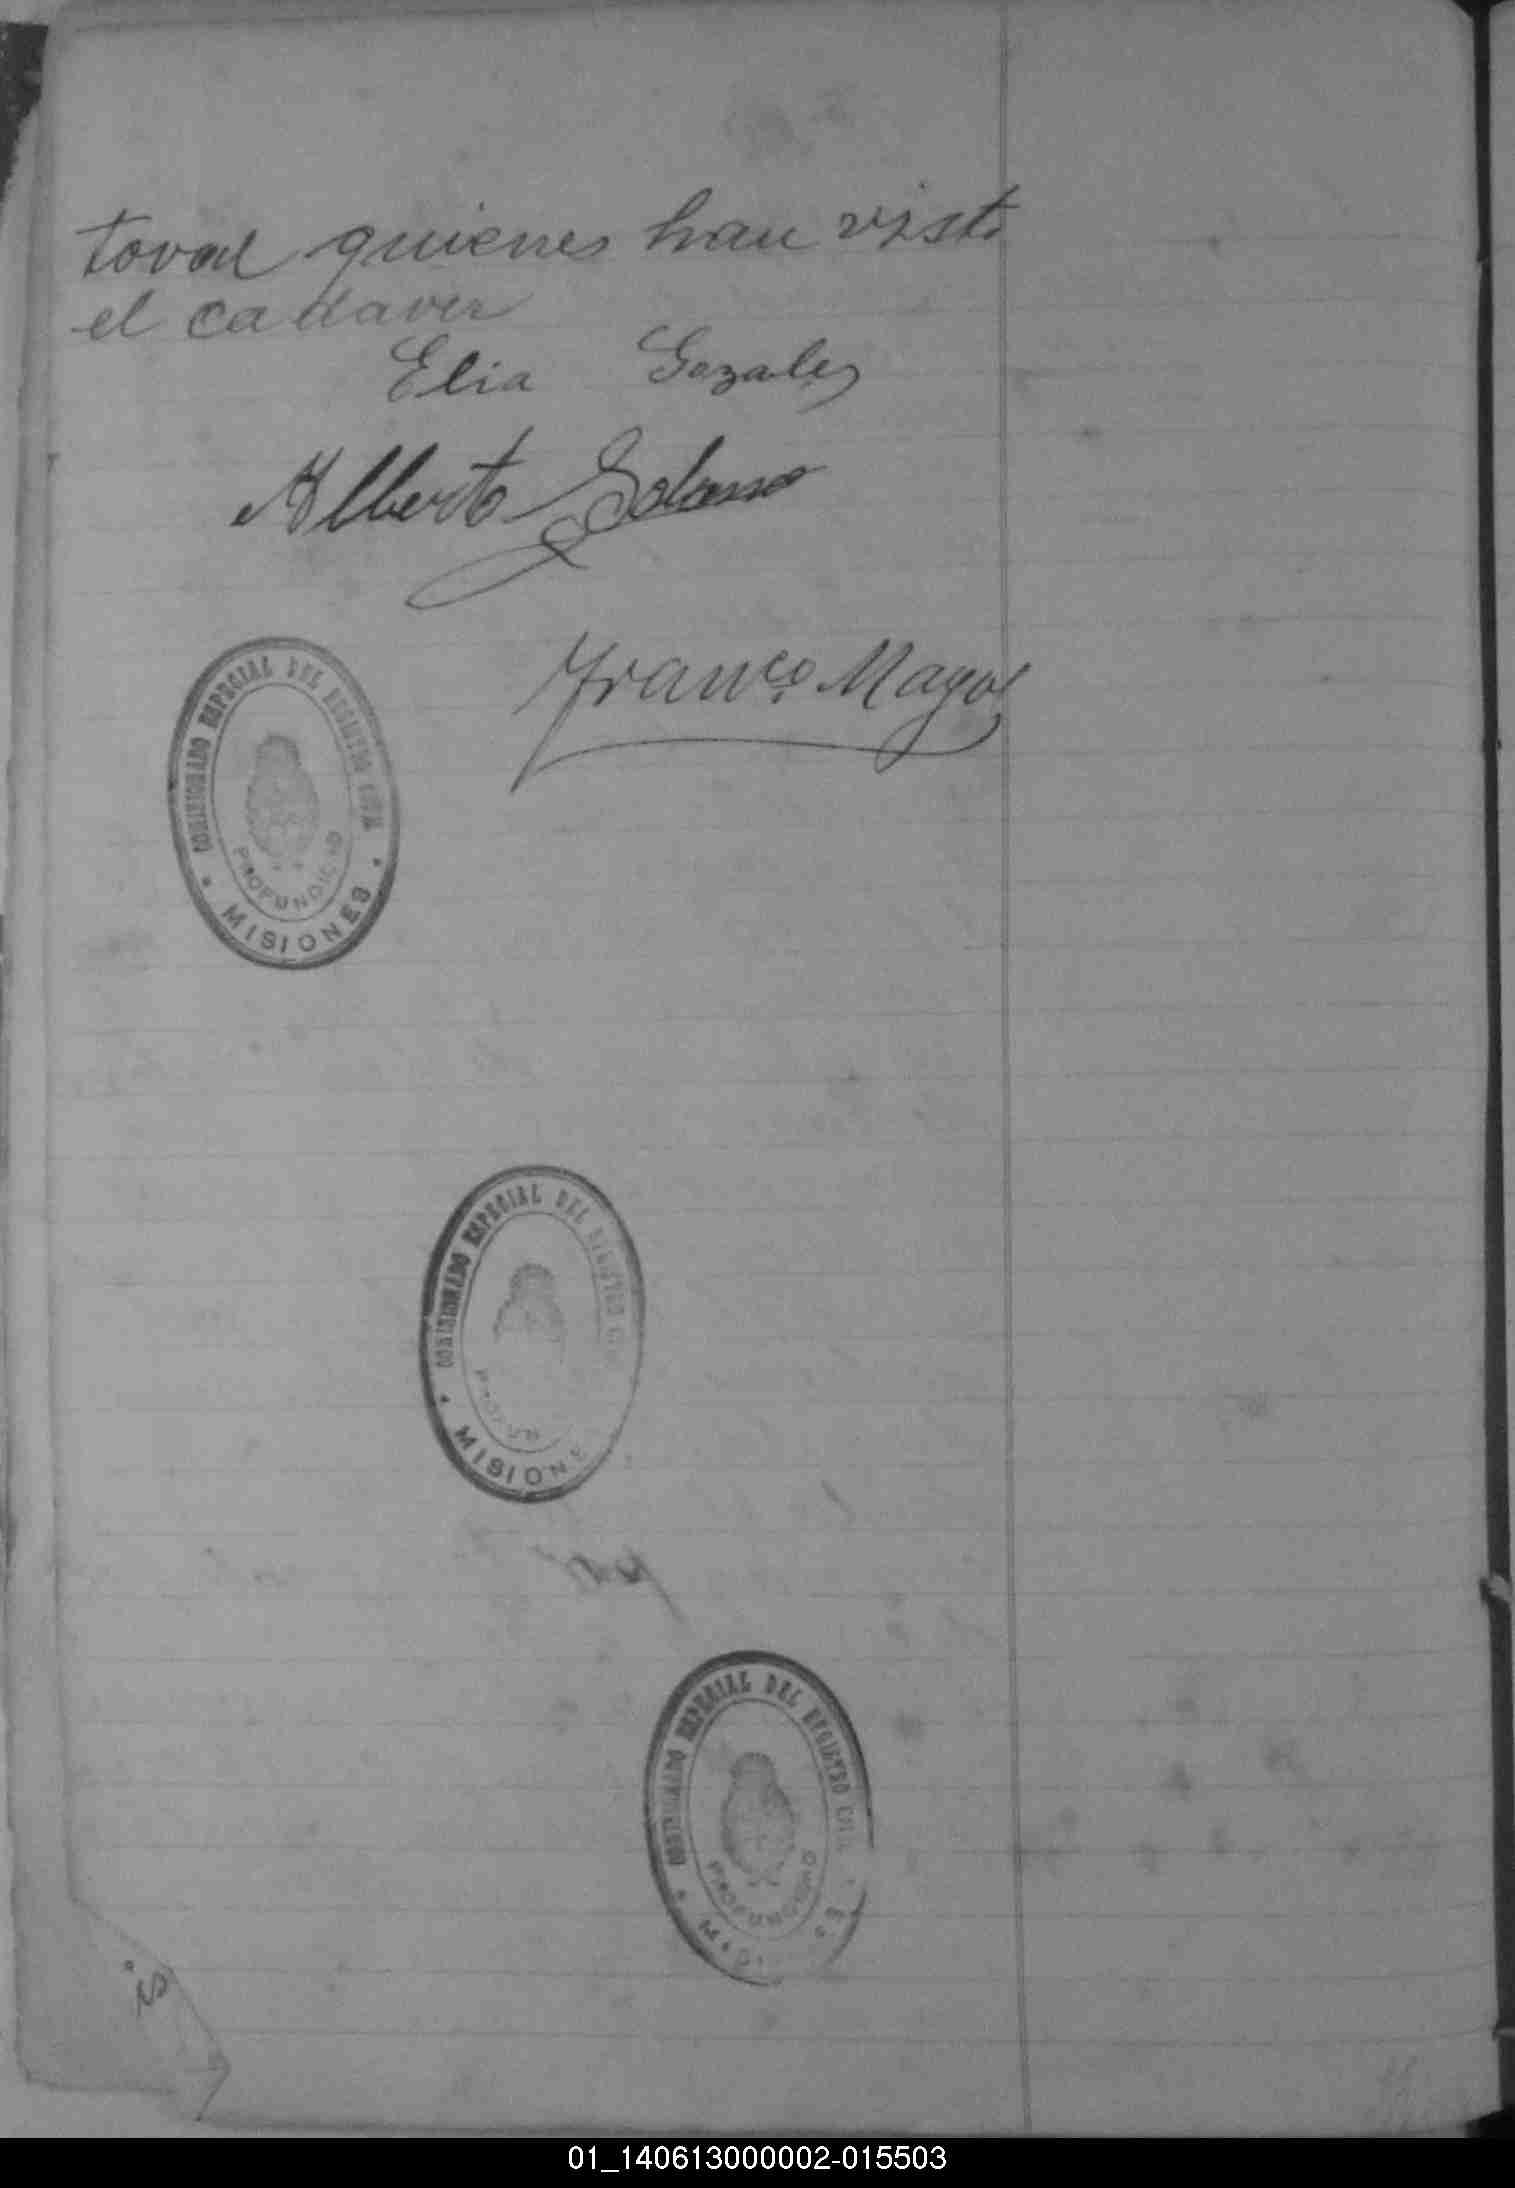 toval quienes han visto
el cadaver
Elia Gozales
Alberto
Franco Mayol
COMISIONADO ESPECIAL DEL REGISTRO CIVIL
PROFUNDIDAD
MISIONES
COMISIONADO ESPECIAL DEL REGISTRO
MISIONE
COMISIONADO ESPECIAL DEL REGISTRO CIVIL
PROFUNDIDAD
01_140613000002-015503